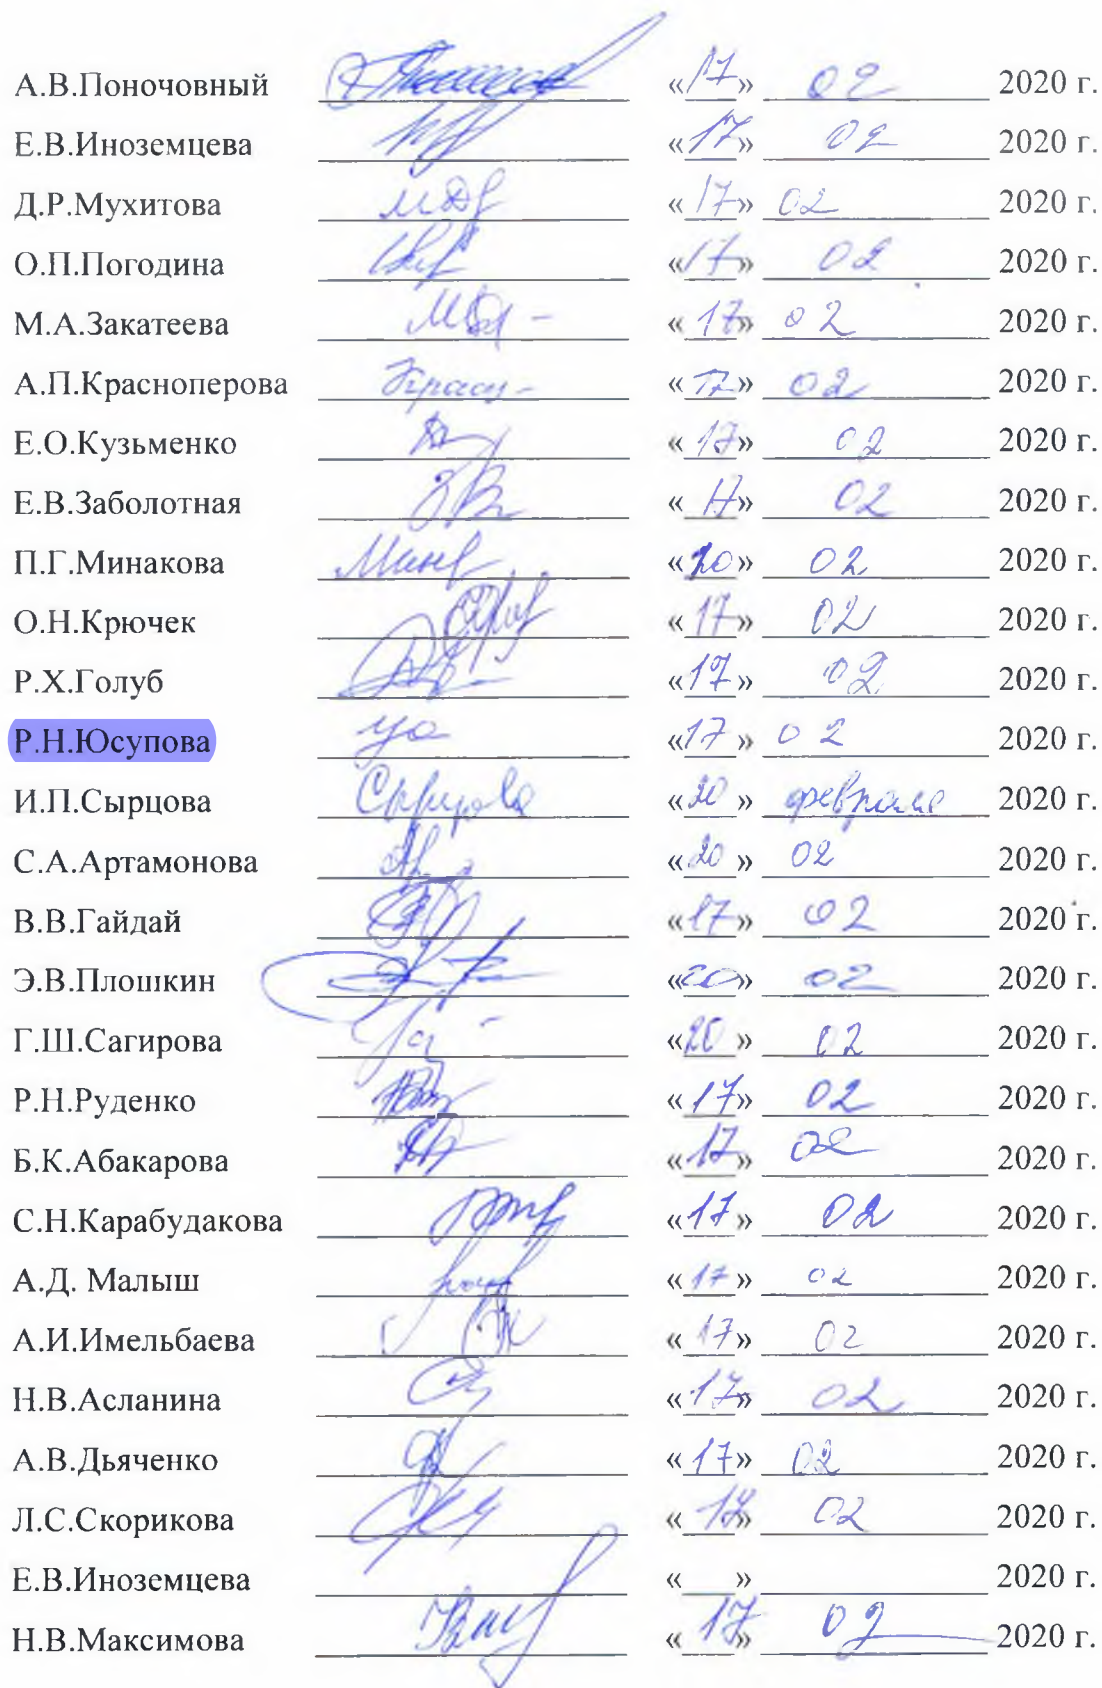 А.В.Поночовный «17» 02 2020 г.
Е.В.Иноземцева «17» 02 2020 г.
Д.Р.Мухитова «17» 02 2020 г.
О.П.Погодина «17» 02 2020 г.
М.А.Закатеева «17» 02 2020 г.
А.П.Красноперова «17» 02 2020 г.
Е.О.Кузьменко «17» 02 2020 г.
Е.В.Заболотная «17» 02 2020 г.
П.Г.Минакова «20» 02 2020 г.
О.Н.Крючек «17» 02 2020 г.
Р.Х.Голуб «17» 02 2020 г.
Р.Н.Юсупова «17» 02 2020 г.
И.П.Сырцова «20» февраля 2020 г.
С.А.Артамонова «20» 02 2020 г.
В.В.Гайдай «17» 02 2020 г.
Э.В.Плошкин «20» 02 2020 г.
Г.Ш.Сагирова «20» 02 2020 г.
Р.Н.Руденко «17» 02 2020 г.
Б.К.Абакарова «17» 02 2020 г.
С.Н.Карабудакова «17» 02 2020 г.
А.Д. Малыш «17» 02 2020 г.
А.И.Имельбаева «17» 02 2020 г.
Н.В.Асланина «17» 02 2020 г.
А.В.Дьяченко «17» 02 2020 г.
Л.С.Скорикова «17» 02 2020 г.
Е.В.Иноземцева «___» 2020 г.
Н.В.Максимова «17» 02 2020 г.